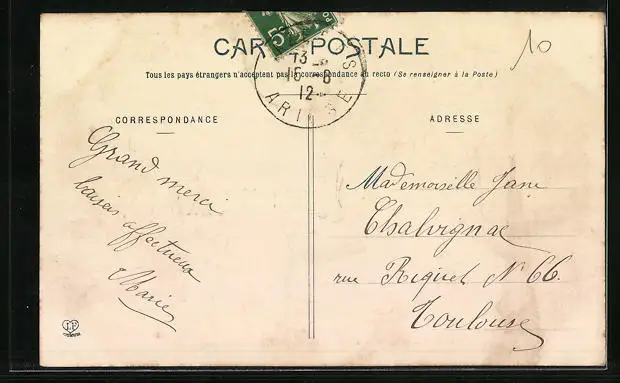 5c
CARTE POSTALE
13
16-8
12
ARIÈGE
10
Tous les pays étrangers n'acceptent pas la correspondance au recto (Se renseigner à la Poste)
CORRESPONDANCE
ADRESSE
Grand merci
baisers affectueux
Marie
Mademoiselle Jane
Chalvignac
rue Riquet N° 66.
Toulouse